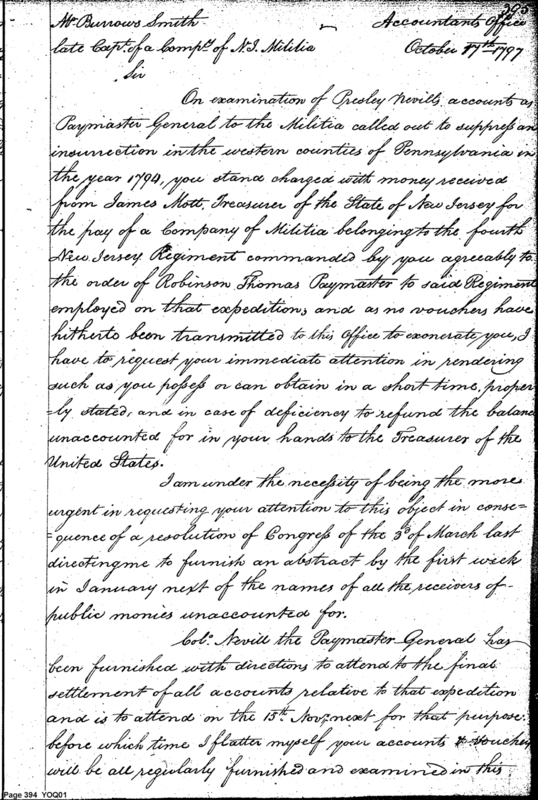 395
Mr. Burrows Smith - Accountants Office
late Capt. of a Compy. of N.J. Militia October 17th 1797
Sir
On examination of Presley Nevills accounts as
Paymaster General to the Militia called out to suppress an
insurrection in the western counties of Pennsylvania in
the year 1794, you stand charged with money received
from James Mott, Treasurer of the State of New Jersey for
the pay of a Company of Militia belonging to the fourth
New Jersey Regiment commanded by you agreeably to
the order of Robinson Thomas Paymaster to said Regiment
employed on that expedition; and as no vouchers have
hitherto been transmitted to this Office to exonerate you, I
have to request your immediate attention in rendering
such as you possess or can obtain in a short time, proper
=ly stated, and in case of deficiency to refund the balance
unaccounted for in your hands to the Treasurer of the
United States.
I am under the necessity of being the more
urgent in requesting your attention to this object in conse=
=quence of a resolution of Congress of the 3d. of March last
directing me to furnish an abstract by the first week
in January next of the names of all the receivers of
public monies unaccounted for.
Colo. Nevill the Paymaster General has
been furnished with directions to attend to the final
settlement of all accounts relative to that expedition
and is to attend on the 15th. Novr. next for that purpose.
before which time I flatter myself your accounts & vouchers
will be all regularly furnished and examined in this
Page 394 YOQ01